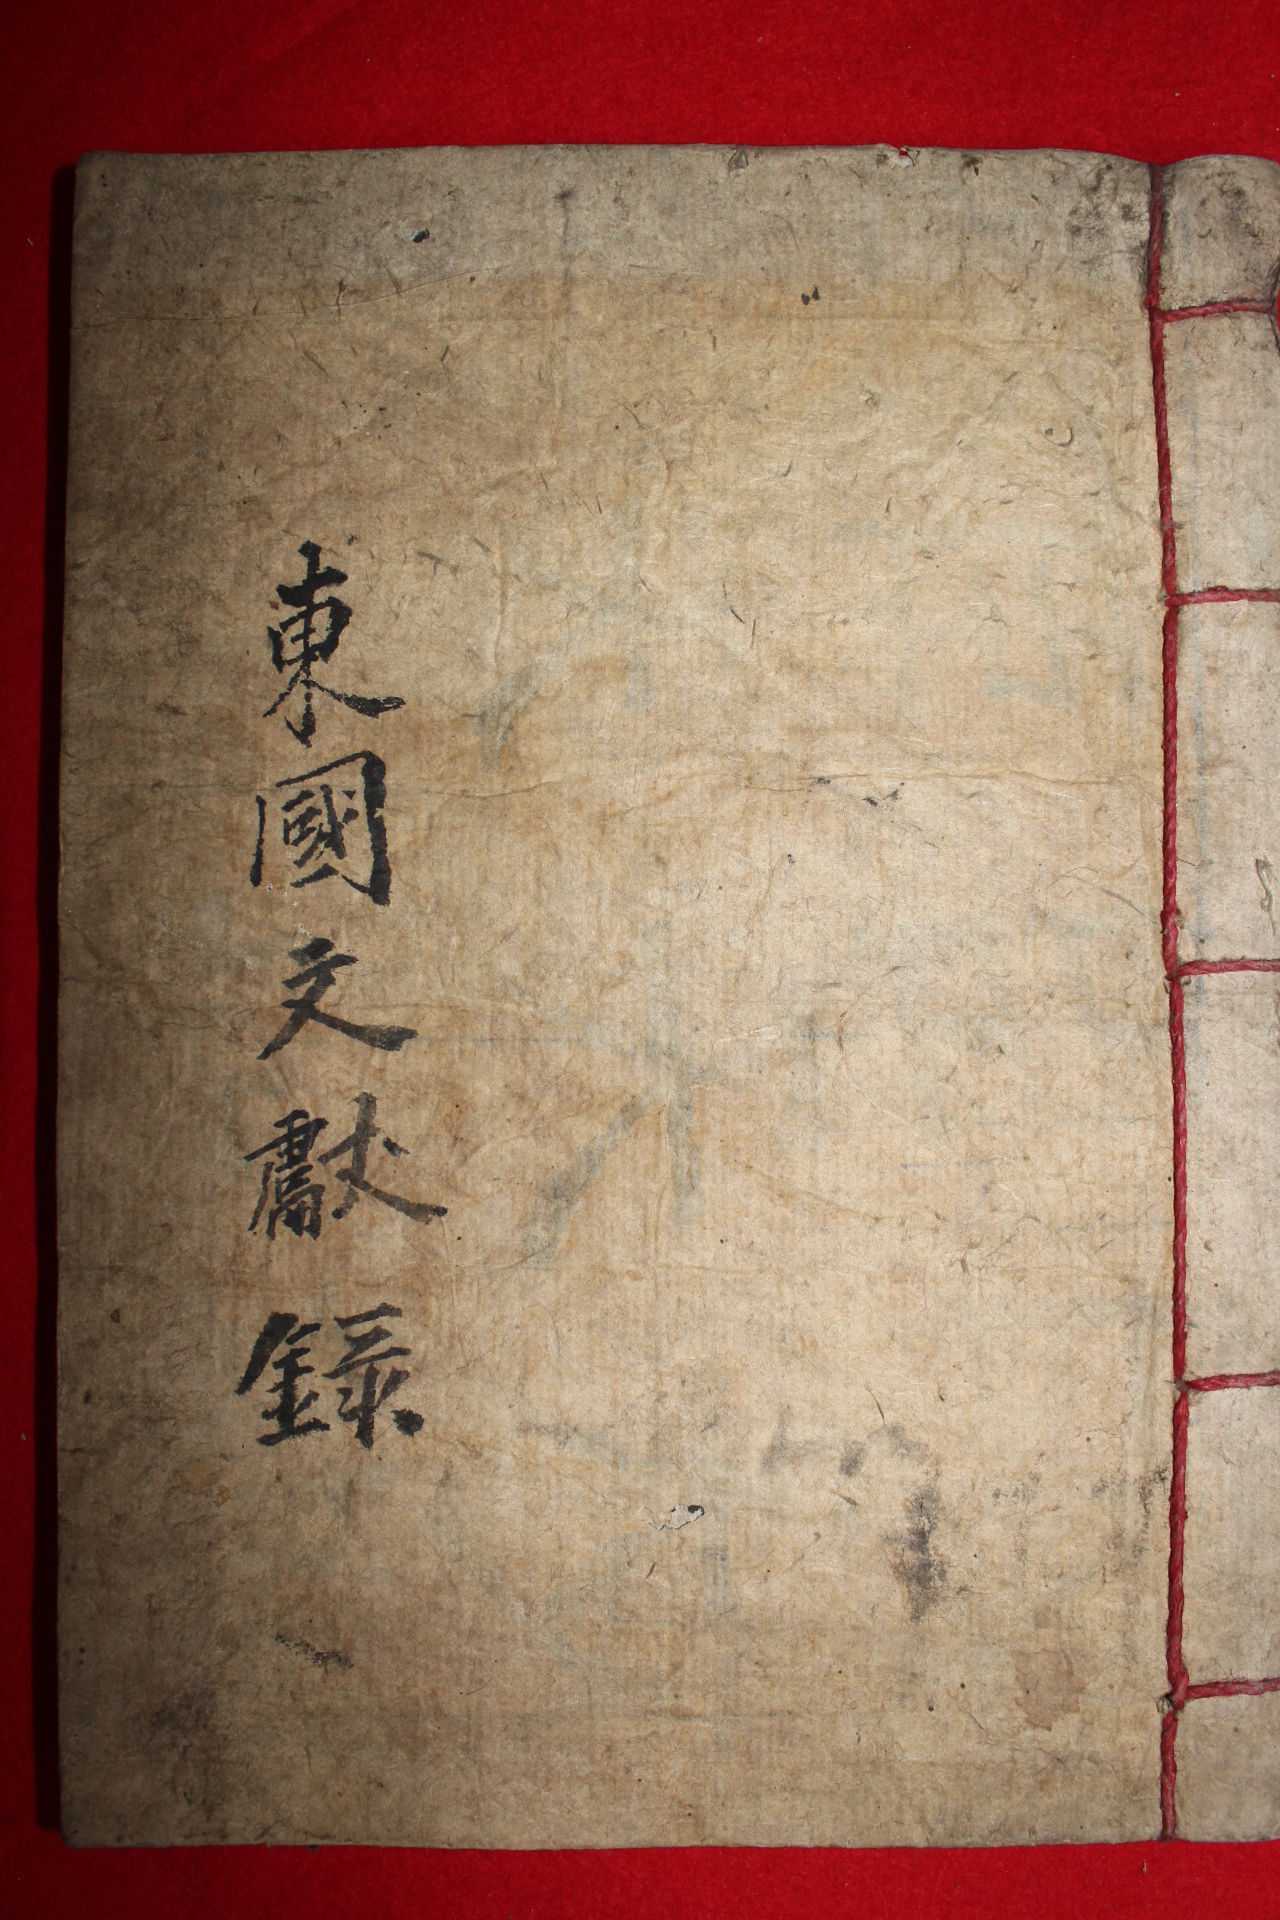 東國文獻錄